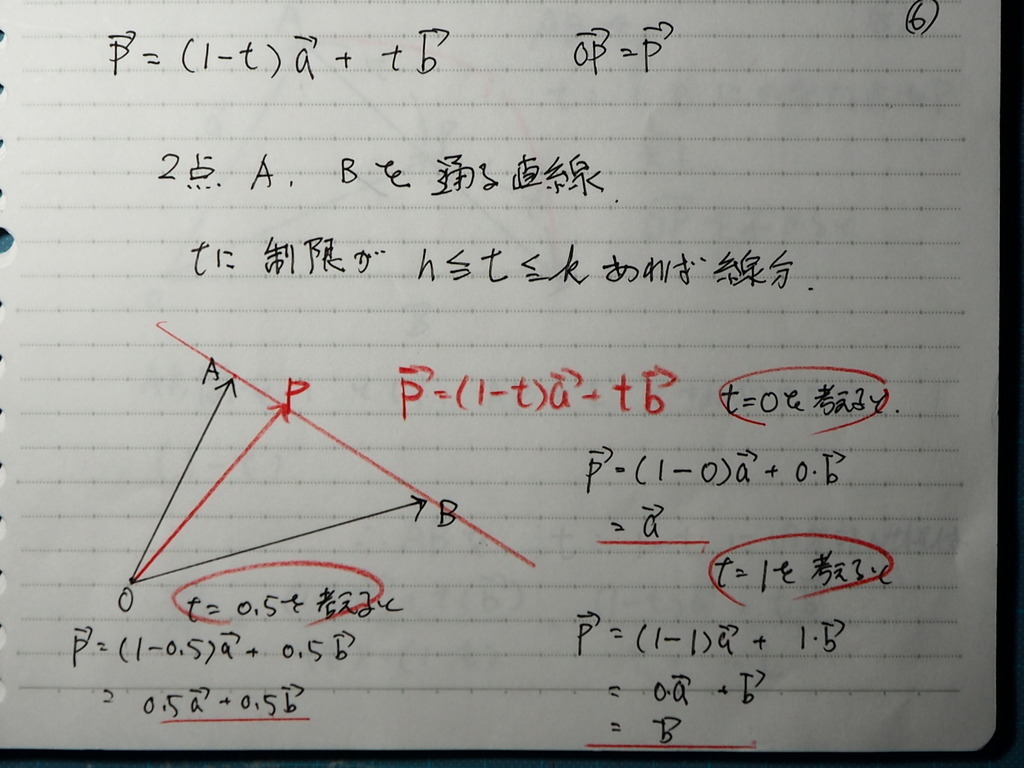 ⑥
p⃗ = (1-t)a⃗ + tb⃗ OP⃗ = p⃗
2点 A, Bを通る直線.
tに制限が h≦t≦k あれば線分.
A
P
B
O
p⃗=(1-t)a⃗+tb⃗
t=0を考えると.
p⃗=(1-0)a⃗+0·b⃗
= a⃗
t=1を考えると
p⃗=(1-1)a⃗+1·b⃗
= 0·a⃗+b⃗
= B
t=0.5を考えると
p⃗=(1-0.5)a⃗+0.5b⃗
= 0.5a⃗+0.5b⃗